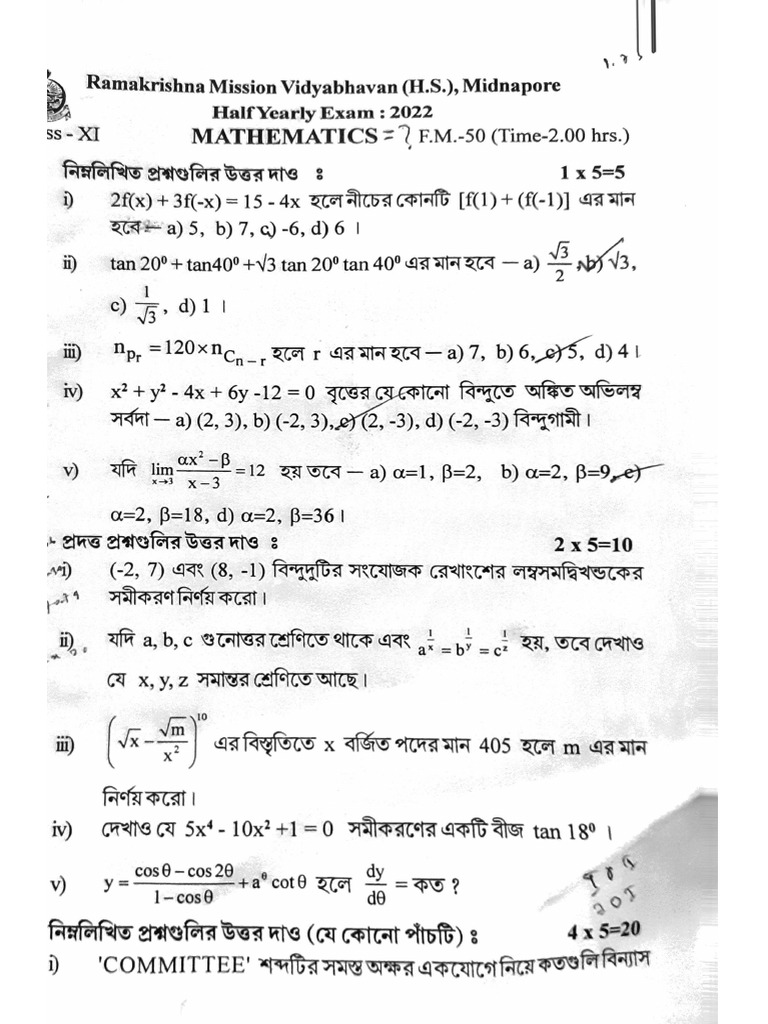 1.3
Ramakrishna Mission Vidyabhavan (H.S.), Midnapore
Half Yearly Exam : 2022
ss - XI MATHEMATICS = ? F.M.-50 (Time-2.00 hrs.)
নিম্নলিখিত প্রশ্নগুলির উত্তর দাও ঃ 1 x 5=5
i) 2f(x) + 3f(-x) = 15 - 4x হলে নীচের কোনটি [f(1) + (f(-1)] এর মান
হবে — a) 5, b) 7, c) -6, d) 6 ।
ii) tan 20⁰ + tan40⁰ +√3 tan 20⁰ tan 40⁰ এর মান হবে — a) √3/2, b) √3,
c) 1/√3, d) 1 ।
iii) nPr = 120×nCn – r হলে r এর মান হবে — a) 7, b) 6, c) 5, d) 4 ।
iv) x² + y² - 4x + 6y -12 = 0 বৃত্তের যে কোনো বিন্দুতে অঙ্কিত অভিলম্ব
সর্বদা — a) (2, 3), b) (-2, 3), c) (2, -3), d) (-2, -3) বিন্দুগামী ।
v) যদি lim x→3 (αx² – β)/(x – 3) = 12 হয় তবে — a) α=1, β=2, b) α=2, β=9, c)
α=2, β=18, d) α=2, β=36 ।
প্রদত্ত প্রশ্নগুলির উত্তর দাও ঃ 2 x 5=10
i) (-2, 7) এবং (8, -1) বিন্দুদুটির সংযোজক রেখাংশের লম্বসমদ্বিখন্ডকের
সমীকরণ নির্ণয় করো ।
ii) যদি a, b, c গুনোত্তর শ্রেণিতে থাকে এবং a^(1/x) = b^(1/y) = c^(1/z) হয়, তবে দেখাও
যে x, y, z সমান্তর শ্রেণিতে আছে ।
iii) (√x – √m/x²)^10 এর বিস্তৃতিতে x বর্জিত পদের মান 405 হলে m এর মান
নির্ণয় করো ।
iv) দেখাও যে 5x⁴ - 10x² +1 = 0 সমীকরণের একটি বীজ tan 18⁰ ।
v) y = (cos θ – cos 2θ)/(1 – cos θ) + a^θ cot θ হলে dy/dθ = কত ?
নিম্নলিখিত প্রশ্নগুলির উত্তর দাও (যে কোনো পাঁচটি) ঃ 4 x 5=20
i) 'COMMITTEE' শব্দটির সমস্ত অক্ষর একযোগে নিয়ে কতগুলি বিন্যাস